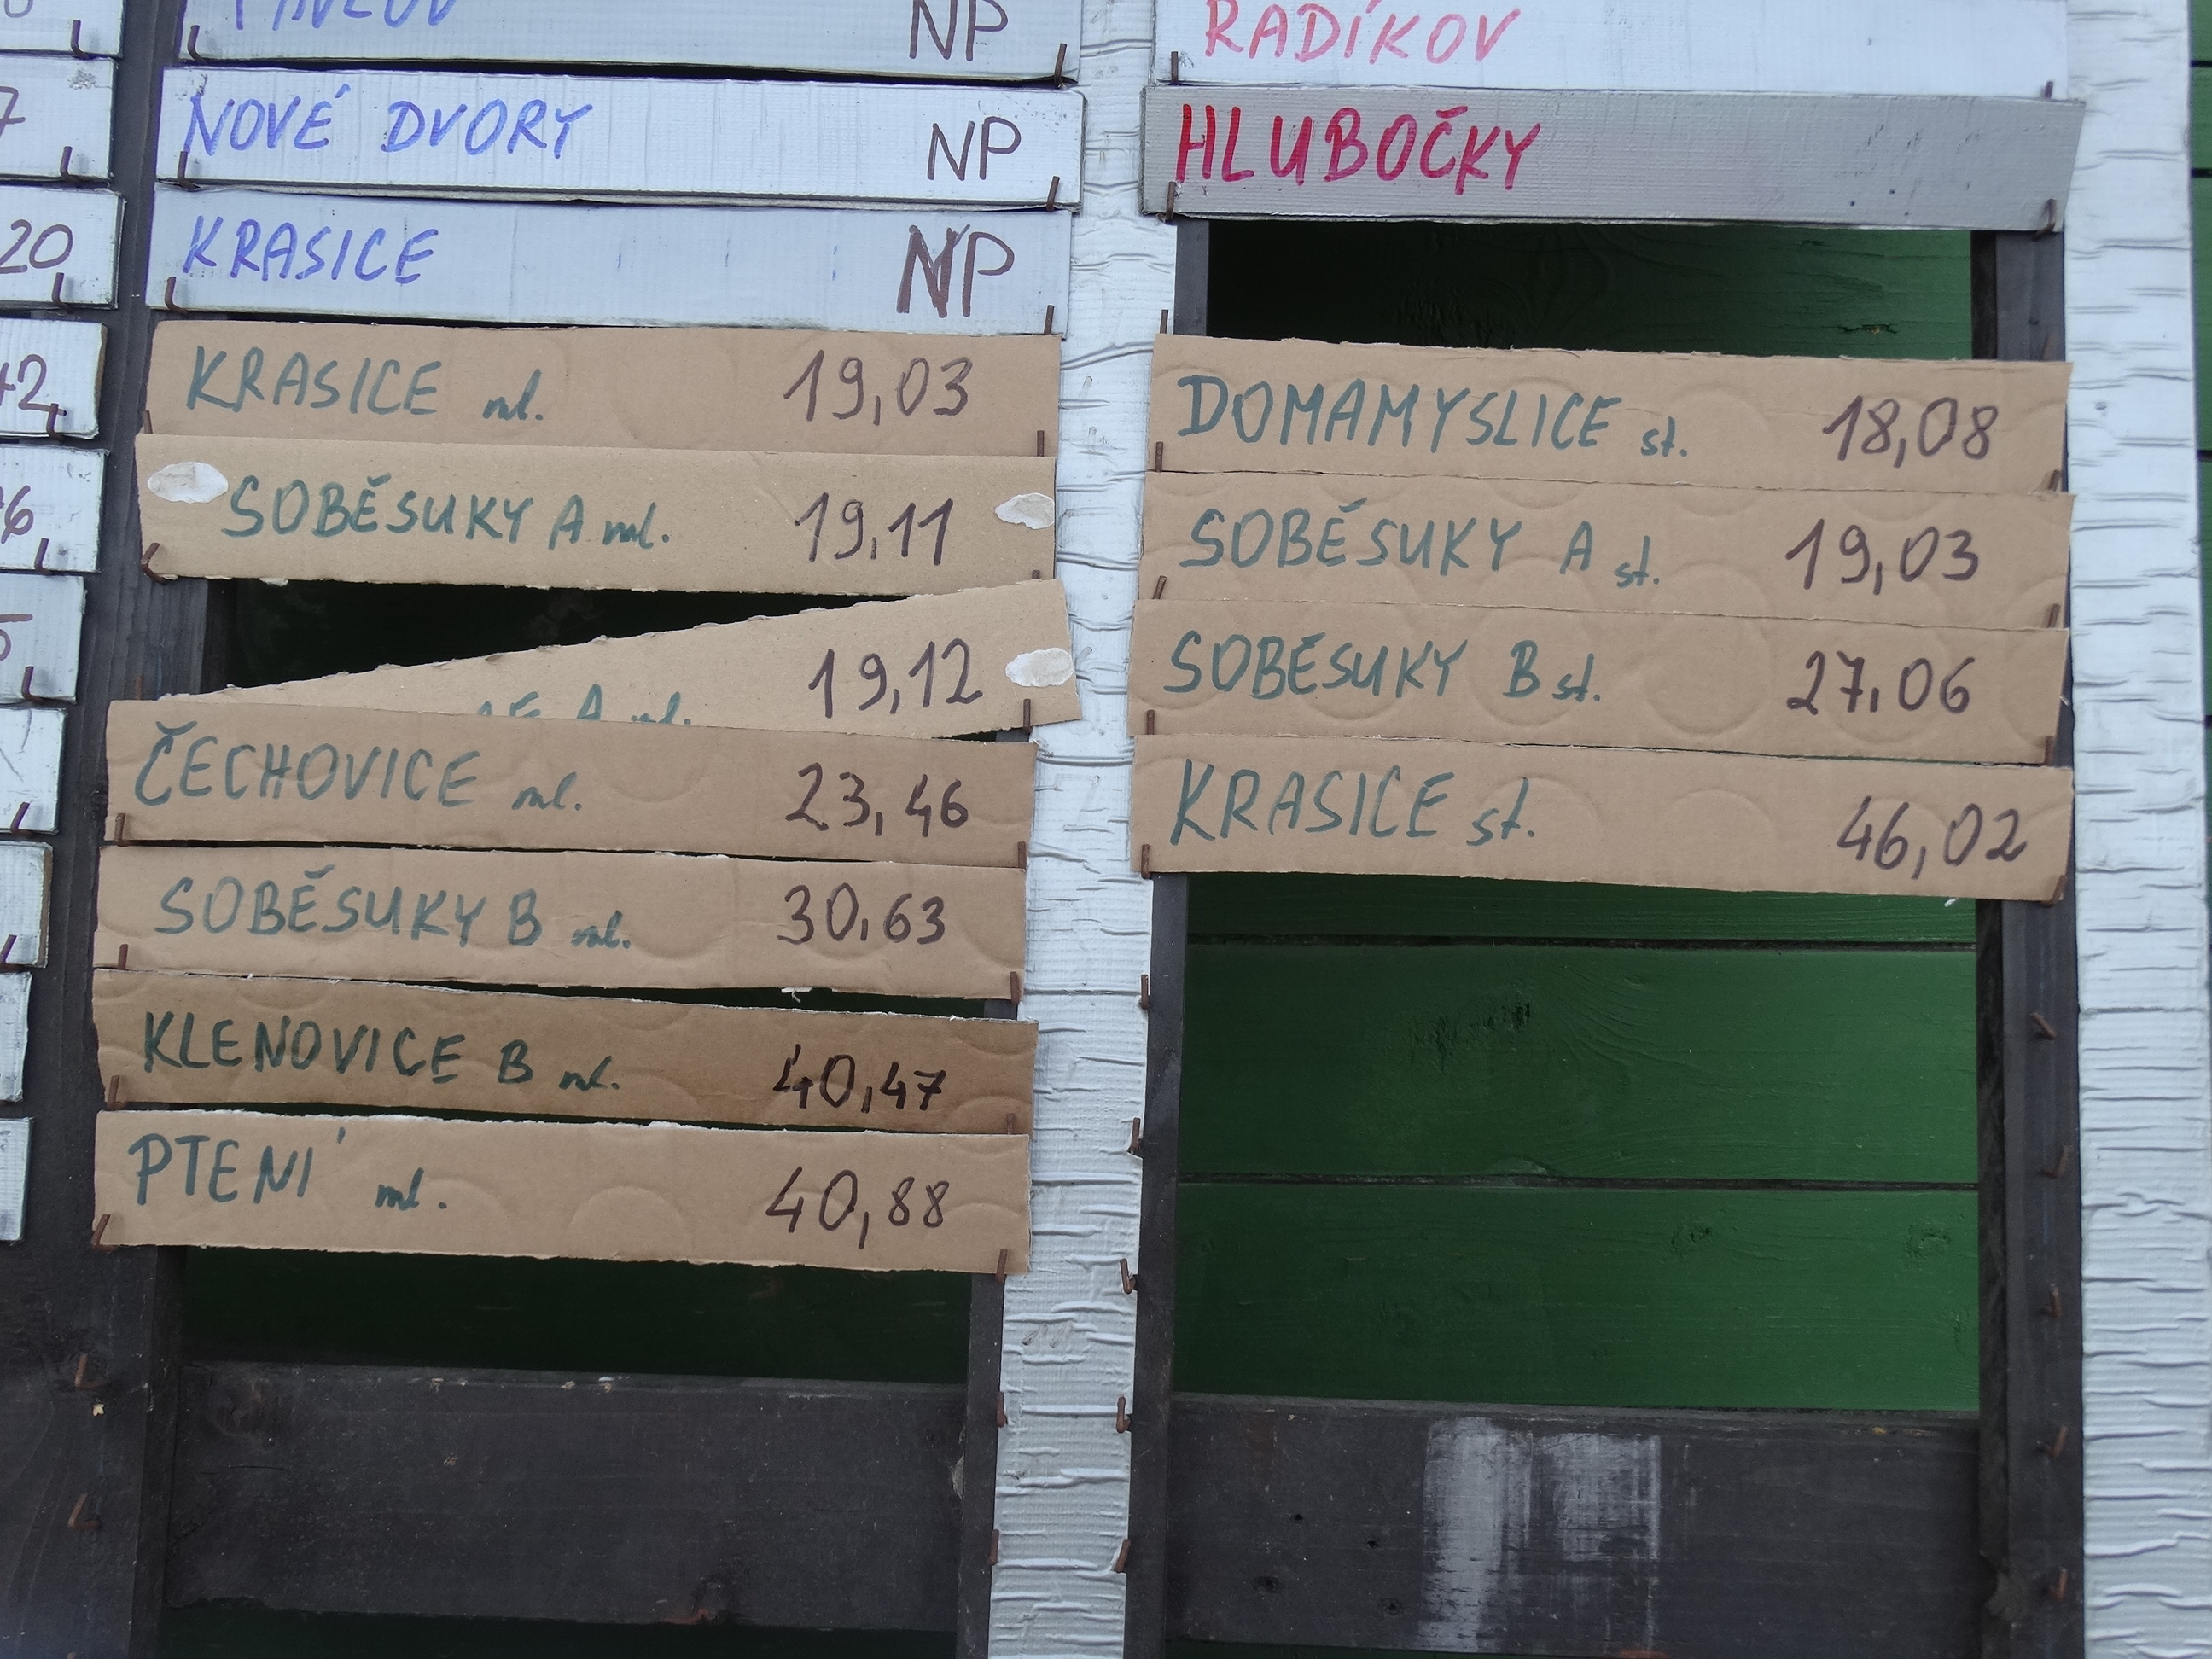 NP
NOVÉ DVORY NP
KRASICE NP
KRASICE ml. 19,03
SOBĚSUKY A ml. 19,11
A ml. 19,12
ČECHOVICE ml. 23,46
SOBĚSUKY B ml. 30,63
KLENOVICE B ml. 40,47
PTENÍ ml. 40,88
RADÍKOV
HLUBOČKY
DOMAMYSLICE st. 18,08
SOBĚSUKY A st. 19,03
SOBĚSUKY B st. 27,06
KRASICE st. 46,02
7
20